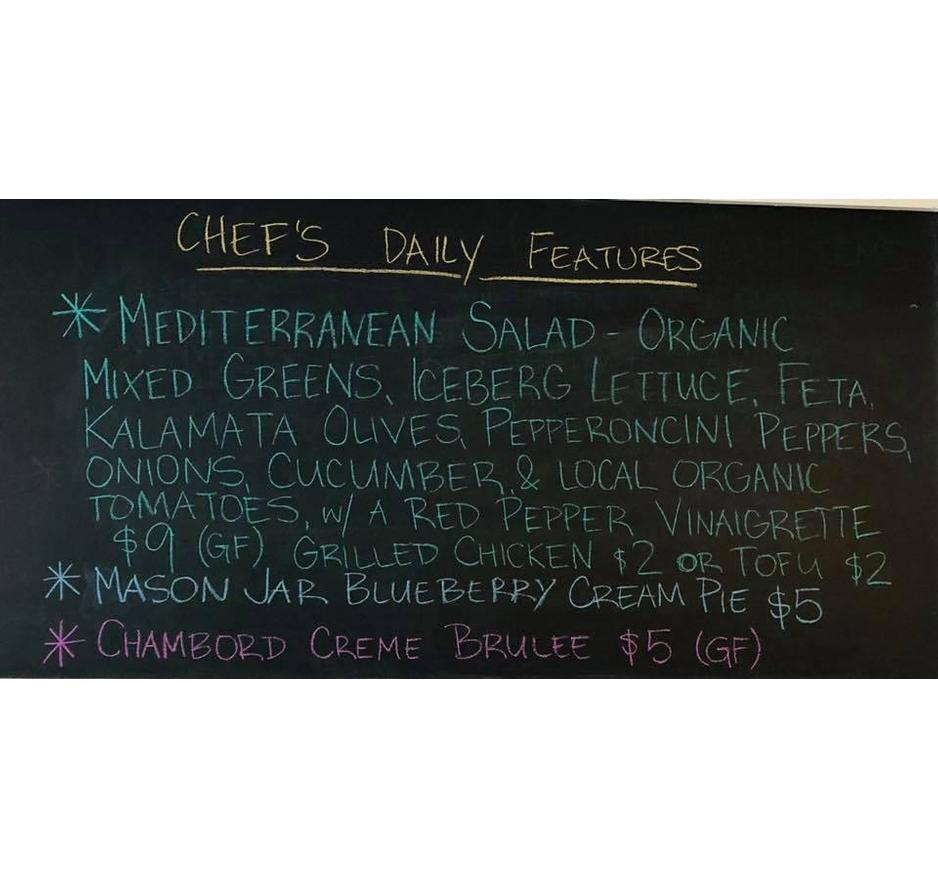 CHEF'S DAILY FEATURES
* MEDITERRANEAN SALAD - ORGANIC
MIXED GREENS, ICEBERG LETTUCE, FETA,
KALAMATA OLIVES, PEPPERONCINI PEPPERS,
ONIONS, CUCUMBER, & LOCAL ORGANIC
TOMATOES, W/ A RED PEPPER VINAIGRETTE
$9 (GF) GRILLED CHICKEN $2 OR TOFU $2
* MASON JAR BLUEBERRY CREAM PIE $5
* CHAMBORD CREME BRULEE $5 (GF)